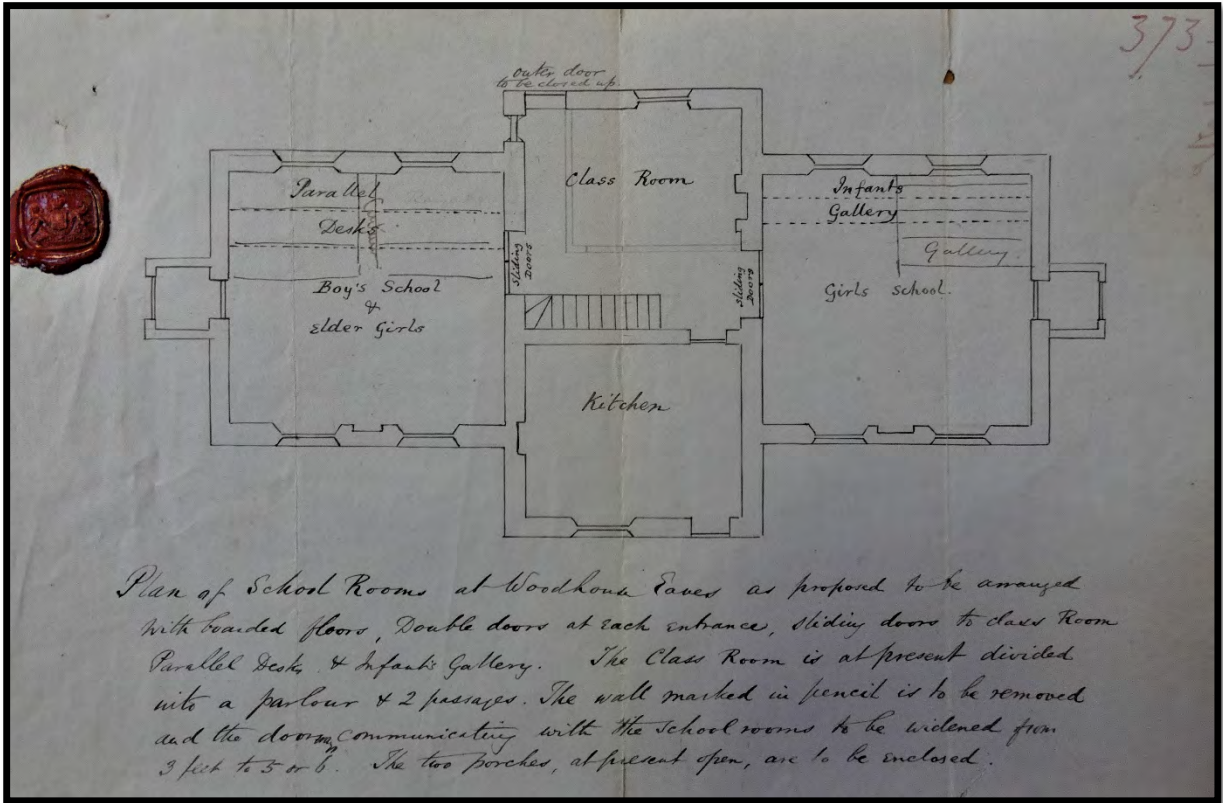 373
outer door
to be closed up
Class Room
Parallel
Desks
Boy's School
&
Elder Girls
Sliding
Doors
Sliding
Doors
Infants
Gallery
Gallery
Girls School.
Kitchen
Plan of School Rooms at Woodhouse Eaves as proposed to be arranged
with boarded floors, Double doors at each entrance, sliding doors to class Room
Parallel Desks & Infants Gallery. The Class Room is at present divided
into a parlour & 2 passages. The wall marked in pencil is to be removed
and the doorways communicating with the School rooms to be widened from
3 feet to 5 or 6. The two porches, at present open, are to be enclosed.